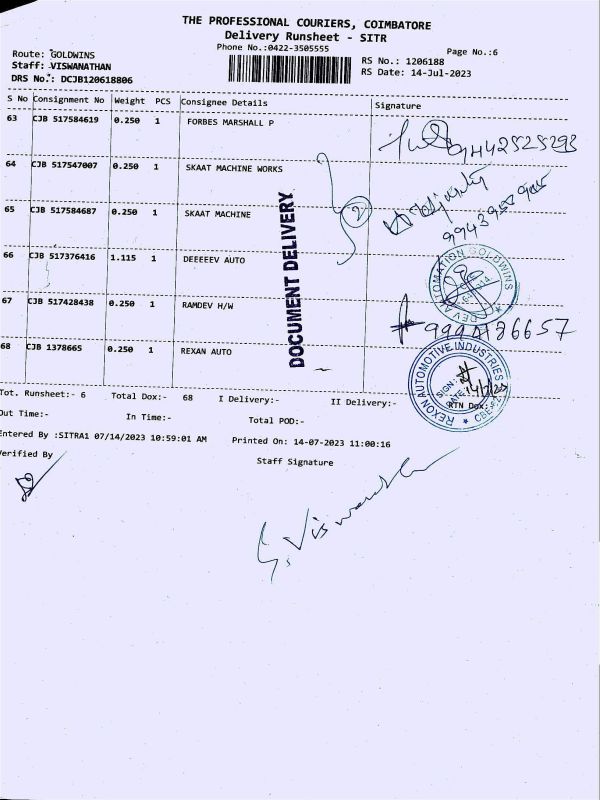 THE PROFESSIONAL COURIERS, COIMBATORE
Delivery Runsheet - SITR
Phone No.:0422-3505555
Page No.:6
Route: GOLDWINS
Staff: VISWANATHAN
DRS No.: DCJB120618806
RS No.: 1206188
RS Date: 14-Jul-2023
S No Consignment No Weight PCS Consignee Details Signature
63 CJB 517584619 0.250 1 FORBES MARSHALL P
64 CJB 517547007 0.250 1 SKAAT MACHINE WORKS
65 CJB 517584687 0.250 1 SKAAT MACHINE
2
66 CJB 517376416 1.115 1 DEEEEEV AUTO
67 CJB 517428438 0.250 1 RAMDEV H/W
68 CJB 1378665 0.250 1 REXAN AUTO
DOCUMENT DELIVERY
REXON AUTOMOTIVE INDUSTRIES
SIGN:
DATE: 14/7/23
CBE-62
Tot. Runsheet:- 6 Total Dox:- 68 I Delivery:- II Delivery:- RTN Dox:-
Out Time:- In Time:- Total POD:-
Entered By :SITRA1 07/14/2023 10:59:01 AM Printed On: 14-07-2023 11:00:16
Verified By Staff Signature
S. Viswanathan